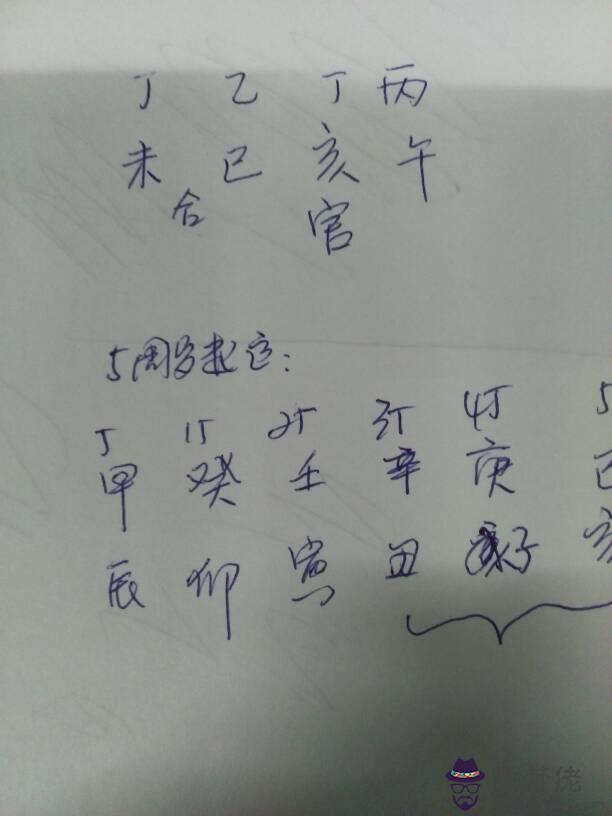 丁 乙 丁 丙
未 巳 亥 午
合 官
5周岁起运:
5 15 25 35 45 5
甲 癸 壬 辛 庚 己
辰 卯 寅 丑 子 亥